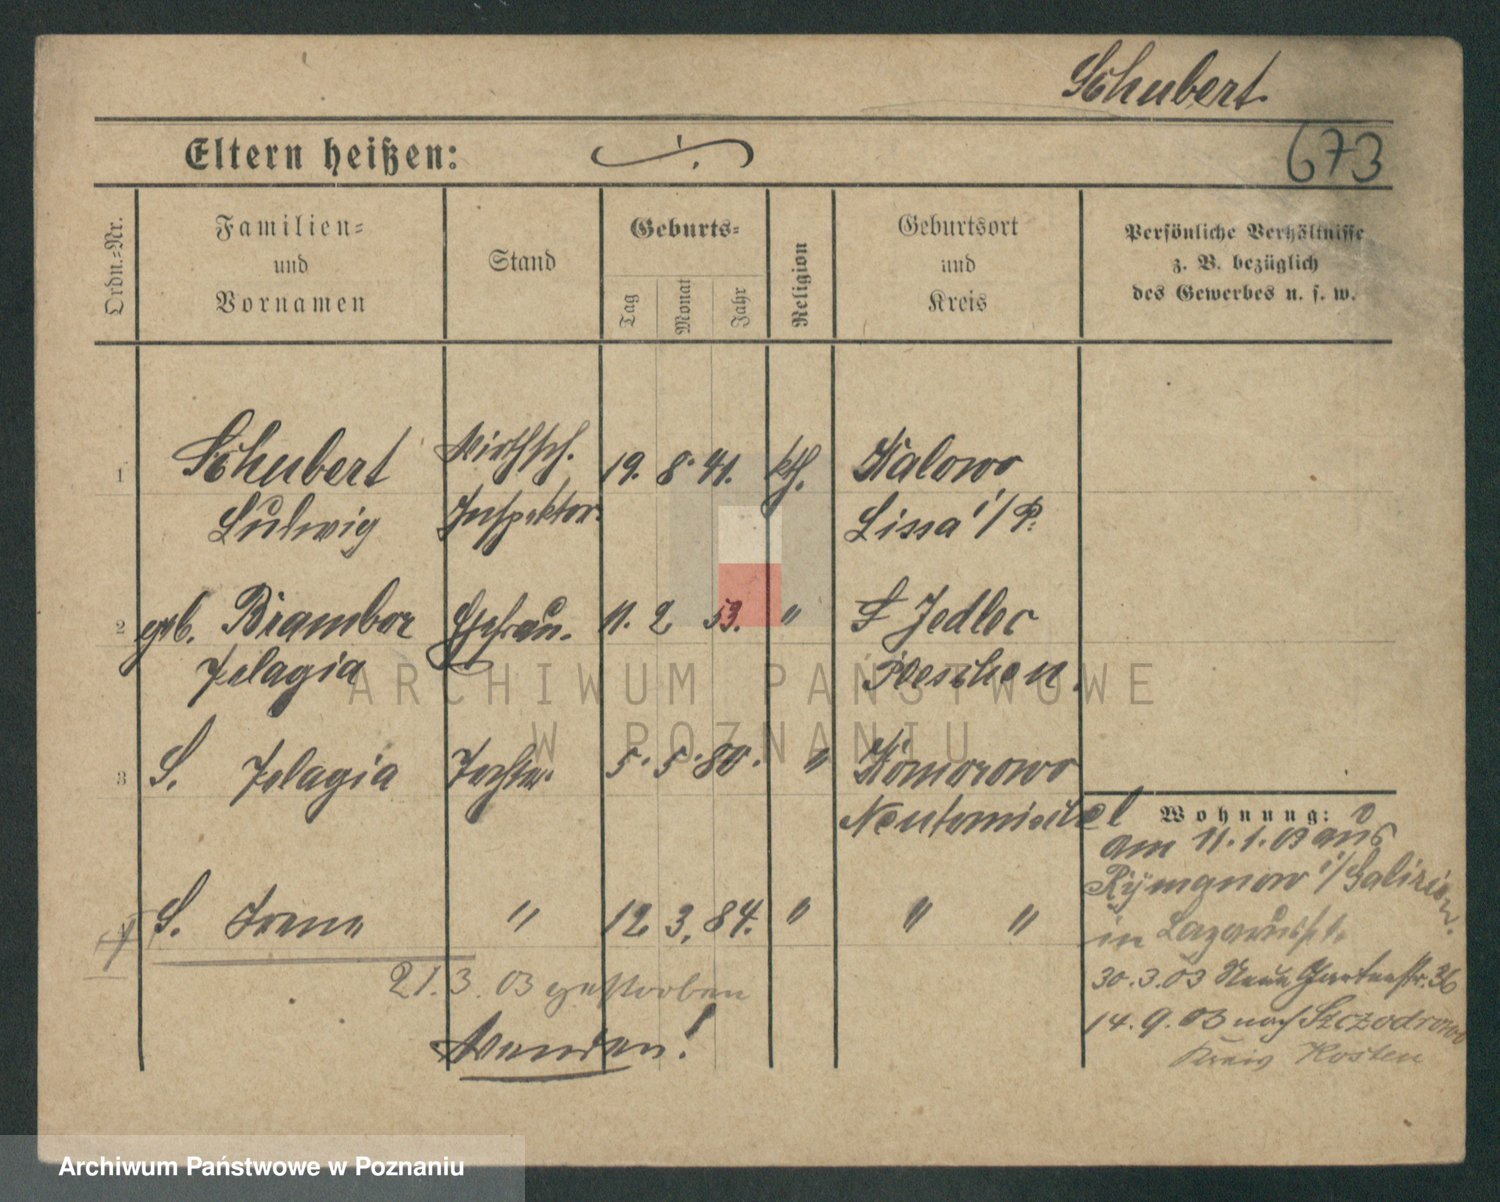 Schubert
673
Eltern heißen:
Ordn.-Nr.
Familien-
und
Vornamen
Stand
Geburts-
Tag
Monat
Jahr
Religion
Geburtsort
und
Kreis
Persönliche Verhältnisse
z. B. bezüglich
des Gewerbes u. s. w.
1 Schubert Wirthsch. 19. 8. 41. kth. Kalowo
Ludwig Inspektor. Lissa i/P.
2 geb. Brambor Ehefrau. 11. 2 53. " Jedlec
Pelagia Pleschen.
3 S. Pelagia Tochter. 5. 5. 80. " Komorowo
Neutomischel
4 S. Irene " 12. 3. 84. " " "
21.3.03 gestorben
Wenden!
Wohnung:
am 11.1.03 aus
Rymanow i/Galizien.
in Lazarusstr.
30.3.03 Neue Gartenstr. 36
14.9.03 nach Szczodrowo
Kreis Kosten
ARCHIWUM PAŃSTWOWE
W POZNANIU
Archiwum Państwowe w Poznaniu